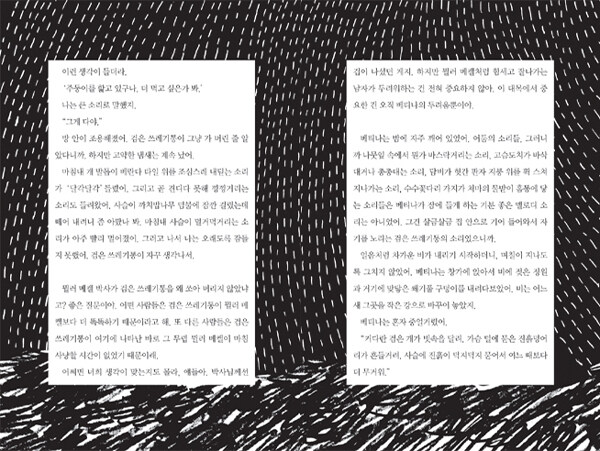 이런 생각이 들더라.
'주둥이를 핥고 있구나. 더 먹고 싶은가 봐.'
나는 큰 소리로 말했지.
"그게 다야."
방 안이 조용해졌어. 검은 쓰레기통이 그냥 가 버린 줄 알
았다니까. 하지만 고약한 냄새는 계속 났어.
마침내 개 발톱이 베란다 타일 위를 조심스레 내딛는 소리
가 '달각달각' 들렸어. 그리고 곧 견디다 못해 낑낑거리는
소리도 들려왔어. 사슬이 까치밥나무 덤불에 잠깐 걸렸는데
떼어 내려니 좀 아팠나 봐. 마침내 사슬이 절거덕거리는 소리
가 아주 빨리 멀어졌어. 그리고 나서 나는 오래도록 잠들
지 못했어. 검은 쓰레기통이 자꾸 생각나서.
뮐러 베켈 박사가 검은 쓰레기통을 왜 쏘아 버리지 않았냐
고? 좋은 질문이야. 어떤 사람들은 검은 쓰레기통이 뮐러 베
켈보다 더 똑똑하기 때문이라고 해. 또 다른 사람들은 검은
쓰레기통이 여기에 나타난 바로 그 무렵 뮐러 베켈이 마침
사냥할 시간이 없었기 때문이래.
어쩌면 너희 생각이 맞는지도 몰라, 얘들아. 박사님께선
겁이 나셨던 거지. 하지만 뮐러 베켈처럼 힘세고 잘나가는
남자가 두려워하는 건 전혀 중요하지 않아. 이 대목에서 중
요한 건 오직 베티나의 두려움뿐이야.
베티나는 밤에 자주 깨어 있었어. 어둠의 소리들, 그러니
까 나뭇잎 속에서 뭔가 바스락거리는 소리, 고슴도치가 바삭
대거나 쿵쿵대는 소리, 담비가 헛간 판자 지붕 위를 휙 스쳐
지나가는 소리, 수수꽃다리 가지가 처마의 물받이 홈통에 닿
는 소리들은 베티나가 잠에 들게 하는 기분 좋은 멜로디 소리
는 아니었어. 그건 살금살금 집 안으로 기어 들어와서 자
기를 노리는 검은 쓰레기통의 소리였으니까.
일흔처럼 차가운 비가 내리기 시작하더니, 며칠이 지나도
록 그치지 않았어. 베티나는 창가에 앉아서 비에 젖은 정원
과 거기에 맞닿은 쓰레기 구덩이를 내려다보았어. 비는 어느
새 그곳을 작은 강으로 바꾸어 놓았지.
베티나는 혼자 중얼거렸어.
"커다란 검은 개가 빗속을 달려. 가슴 털에 묻은 진흙덩어
리가 흔들거려. 사슬에 진흙이 덕지덕지 묻어서 여느 때보다
더 무거워."